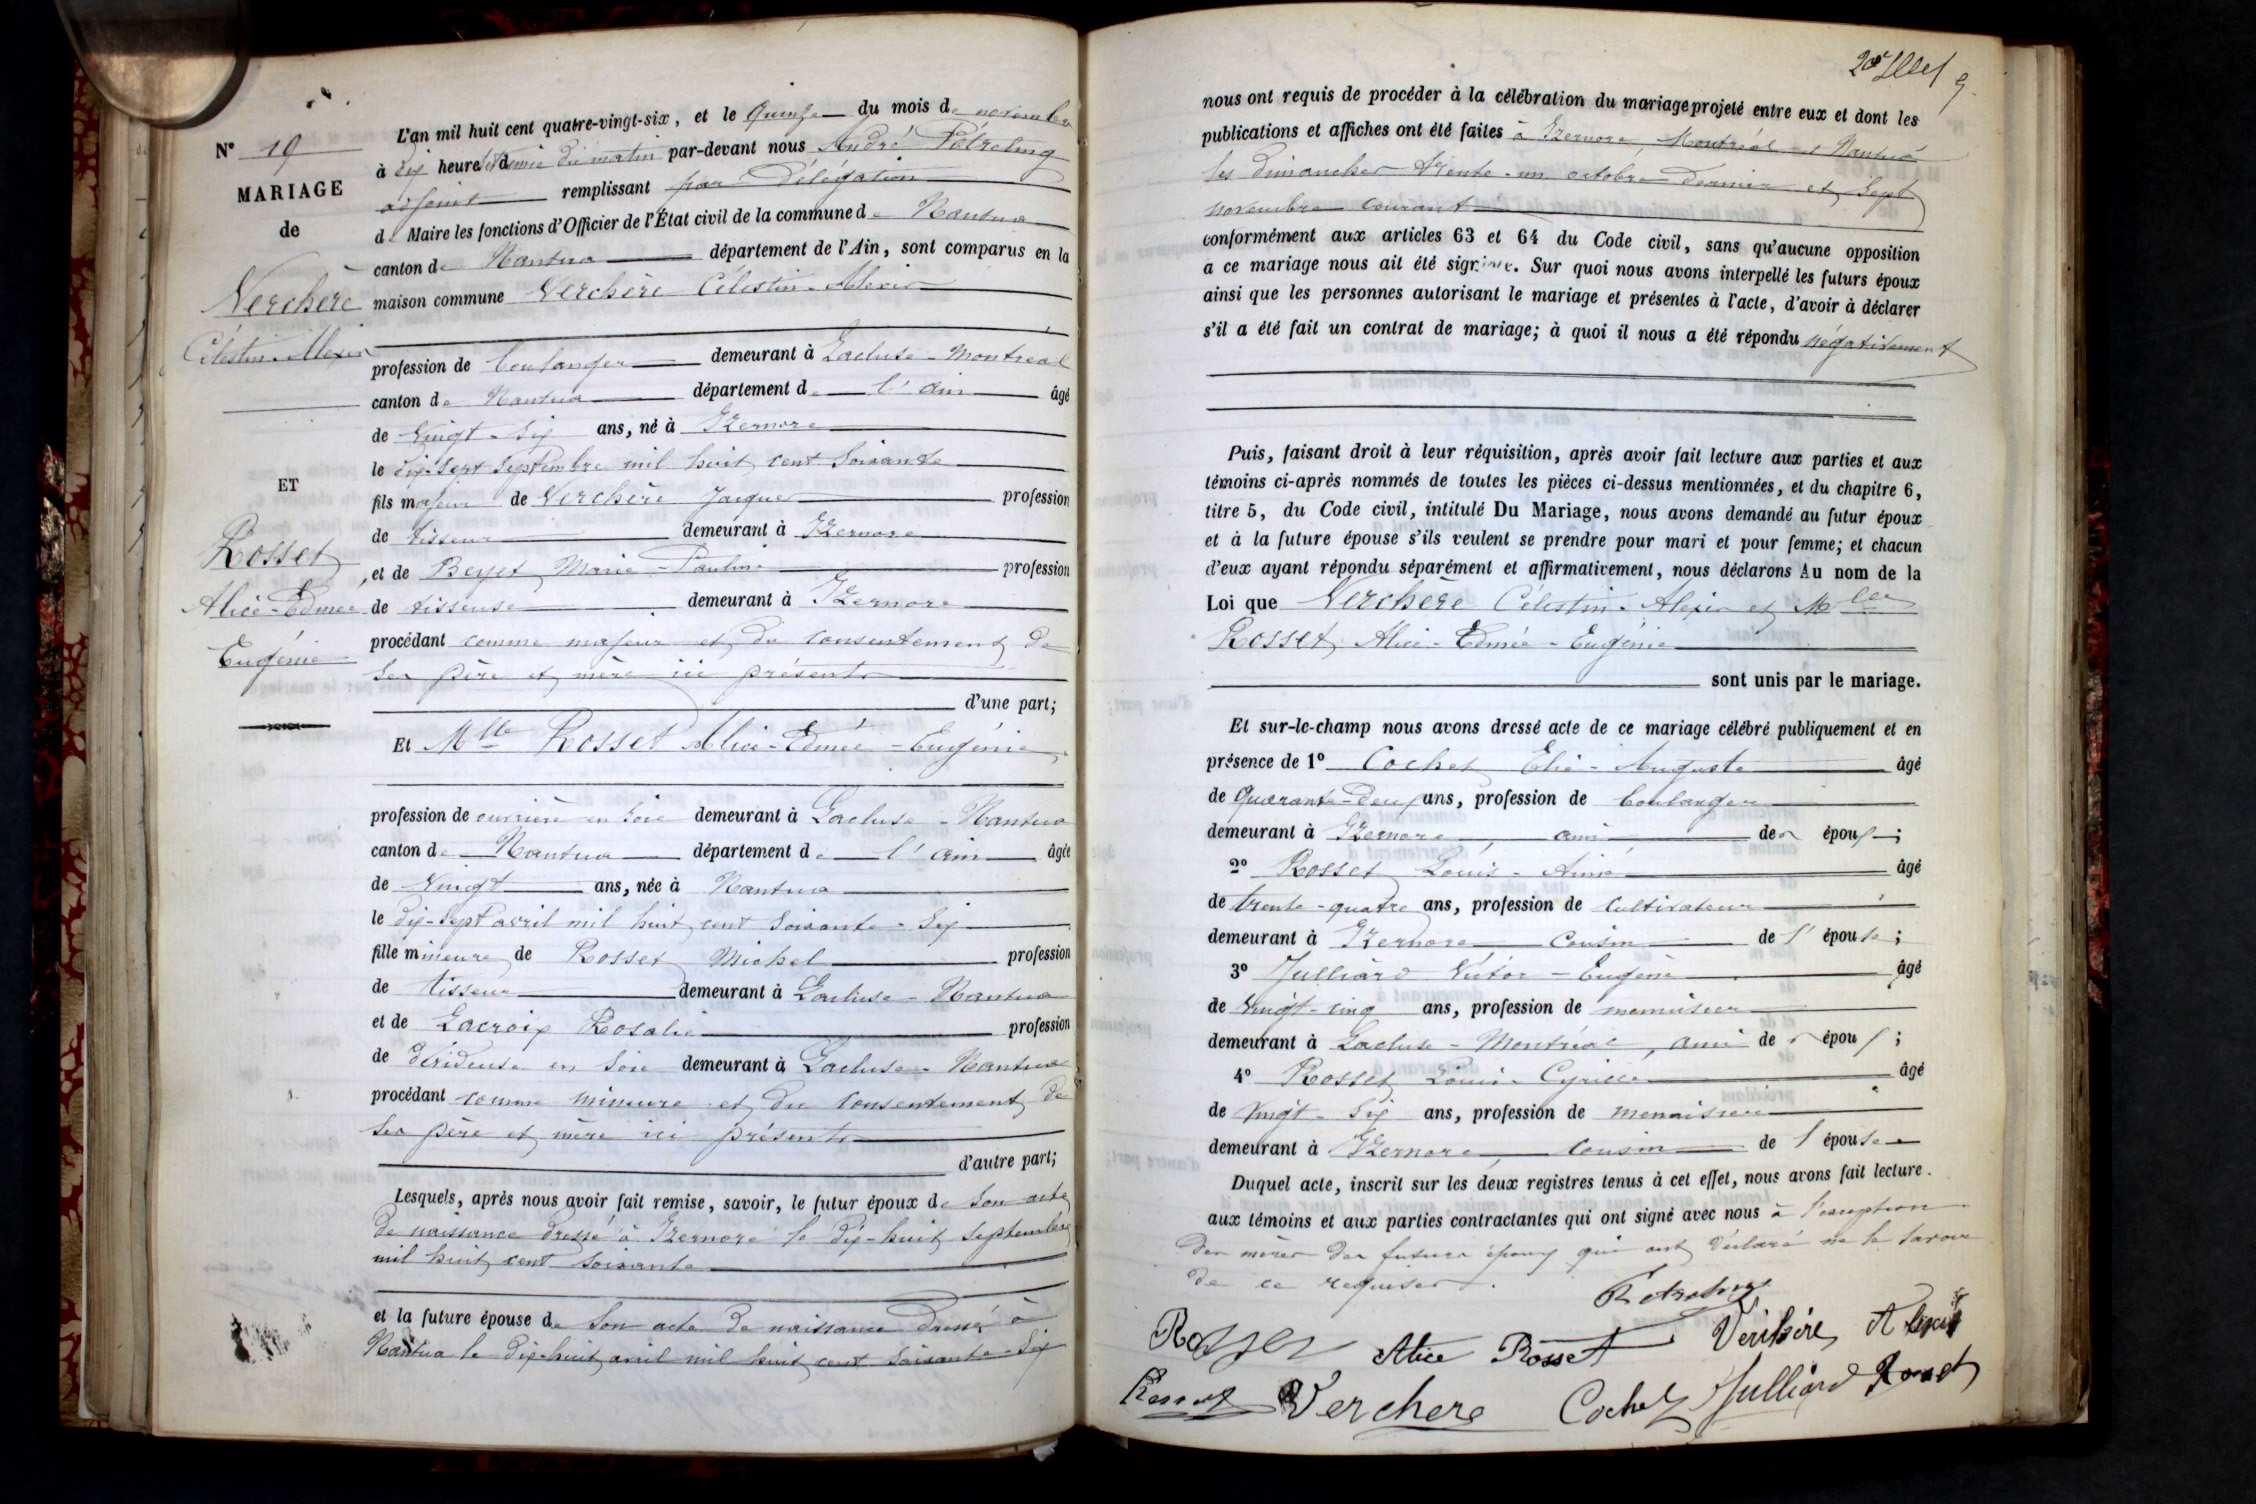 N° 19
MARIAGE
de
Verchère
Célestin-Alexis
ET
Rosset
Alice-Edmée
Eugénie
L'an mil huit cent quatre-vingt-six, et le Quinze du mois de novembre
à dix heures et demie du matin par-devant nous André Petreling
adjoint remplissant par Délégation
d Maire les fonctions d'Officier de l'État civil de la commune de Nantua
canton de Nantua département de l'Ain, sont comparus en la
maison commune Verchère Célestin-Alexis
profession de boulanger demeurant à Lacluse-Montréal
canton de Nantua département de l'ain âgé
de Vingt-six ans, né à Izernore
le dix-sept septembre mil huit cent soixante
fils majeur de Verchère Jacques profession
de tisseur demeurant à Izernore
, et de Beyet Marie-Pauline profession
de tisseuse demeurant à Izernore
procédant comme majeur et du consentement de
ses père et mère ici présents
d'une part;
Et Mlle Rosset Alice-Edmée-Eugénie
profession de ouvrière en soie demeurant à Lacluse-Nantua
canton de Nantua département de l'ain âgée
de Vingt ans, née à Nantua
le dix-sept avril mil huit cent soixante-six
fille mineure de Rosset Michel profession
de tisseur demeurant à Lacluse-Nantua
et de Lacroix Rosalie profession
de dévideuse en soie demeurant à Lacluse-Nantua
procédant comme mineure et du consentement de
ses père et mère ici présents
d'autre part;
Lesquels, après nous avoir fait remise, savoir, le futur époux de son acte
de naissance dressé à Izernore le dix-huit septembre
mil huit cent soixante
et la future épouse de son acte de naissance dressé à
Nantua le dix-huit avril mil huit cent soixante-six
nous ont requis de procéder à la célébration du mariage projeté entre eux et dont les
publications et affiches ont été faites à Izernore, Montréal et Nantua
les dimanches trente-un octobre dernier et sept
novembre courant
conformément aux articles 63 et 64 du Code civil, sans qu'aucune opposition
a ce mariage nous ait été signifiée. Sur quoi nous avons interpellé les futurs époux
ainsi que les personnes autorisant le mariage et présentes à l'acte, d'avoir à déclarer
s'il a été fait un contrat de mariage; à quoi il nous a été répondu négativement
Puis, faisant droit à leur réquisition, après avoir fait lecture aux parties et aux
témoins ci-après nommés de toutes les pièces ci-dessus mentionnées, et du chapitre 6,
titre 5, du Code civil, intitulé Du Mariage, nous avons demandé au futur époux
et à la future épouse s'ils veulent se prendre pour mari et pour femme; et chacun
d'eux ayant répondu séparément et affirmativement, nous déclarons Au nom de la
Loi que Verchère Célestin-Alexis et Mlle
Rosset Alice-Edmée-Eugénie
sont unis par le mariage.
Et sur-le-champ nous avons dressé acte de ce mariage célébré publiquement et en
présence de 1° Cochet Elie-Auguste âgé
de Quarante-deux ans, profession de boulanger
demeurant à Izernore, ami des époux;
2° Rosset Louis-Aimé âgé
de trente-quatre ans, profession de cultivateur
demeurant à Izernore cousin de l'épouse;
3° Julliard Victor-Eugène âgé
de Vingt-cinq ans, profession de menuisier
demeurant à Lacluse-Montréal, ami des époux;
4° Rosset Louis-Cyrille âgé
de Vingt-six ans, profession de menuisier
demeurant à Izernore, cousin de l'épouse
Duquel acte, inscrit sur les deux registres tenus à cet effet, nous avons fait lecture
aux témoins et aux parties contractantes qui ont signé avec nous à l'exception
des mères des futurs époux qui ont déclaré ne le savoir
de ce requises.
Rosset Alice Rosset Verchère Alexis
Rosset Verchere Cochet Julliard Rosset